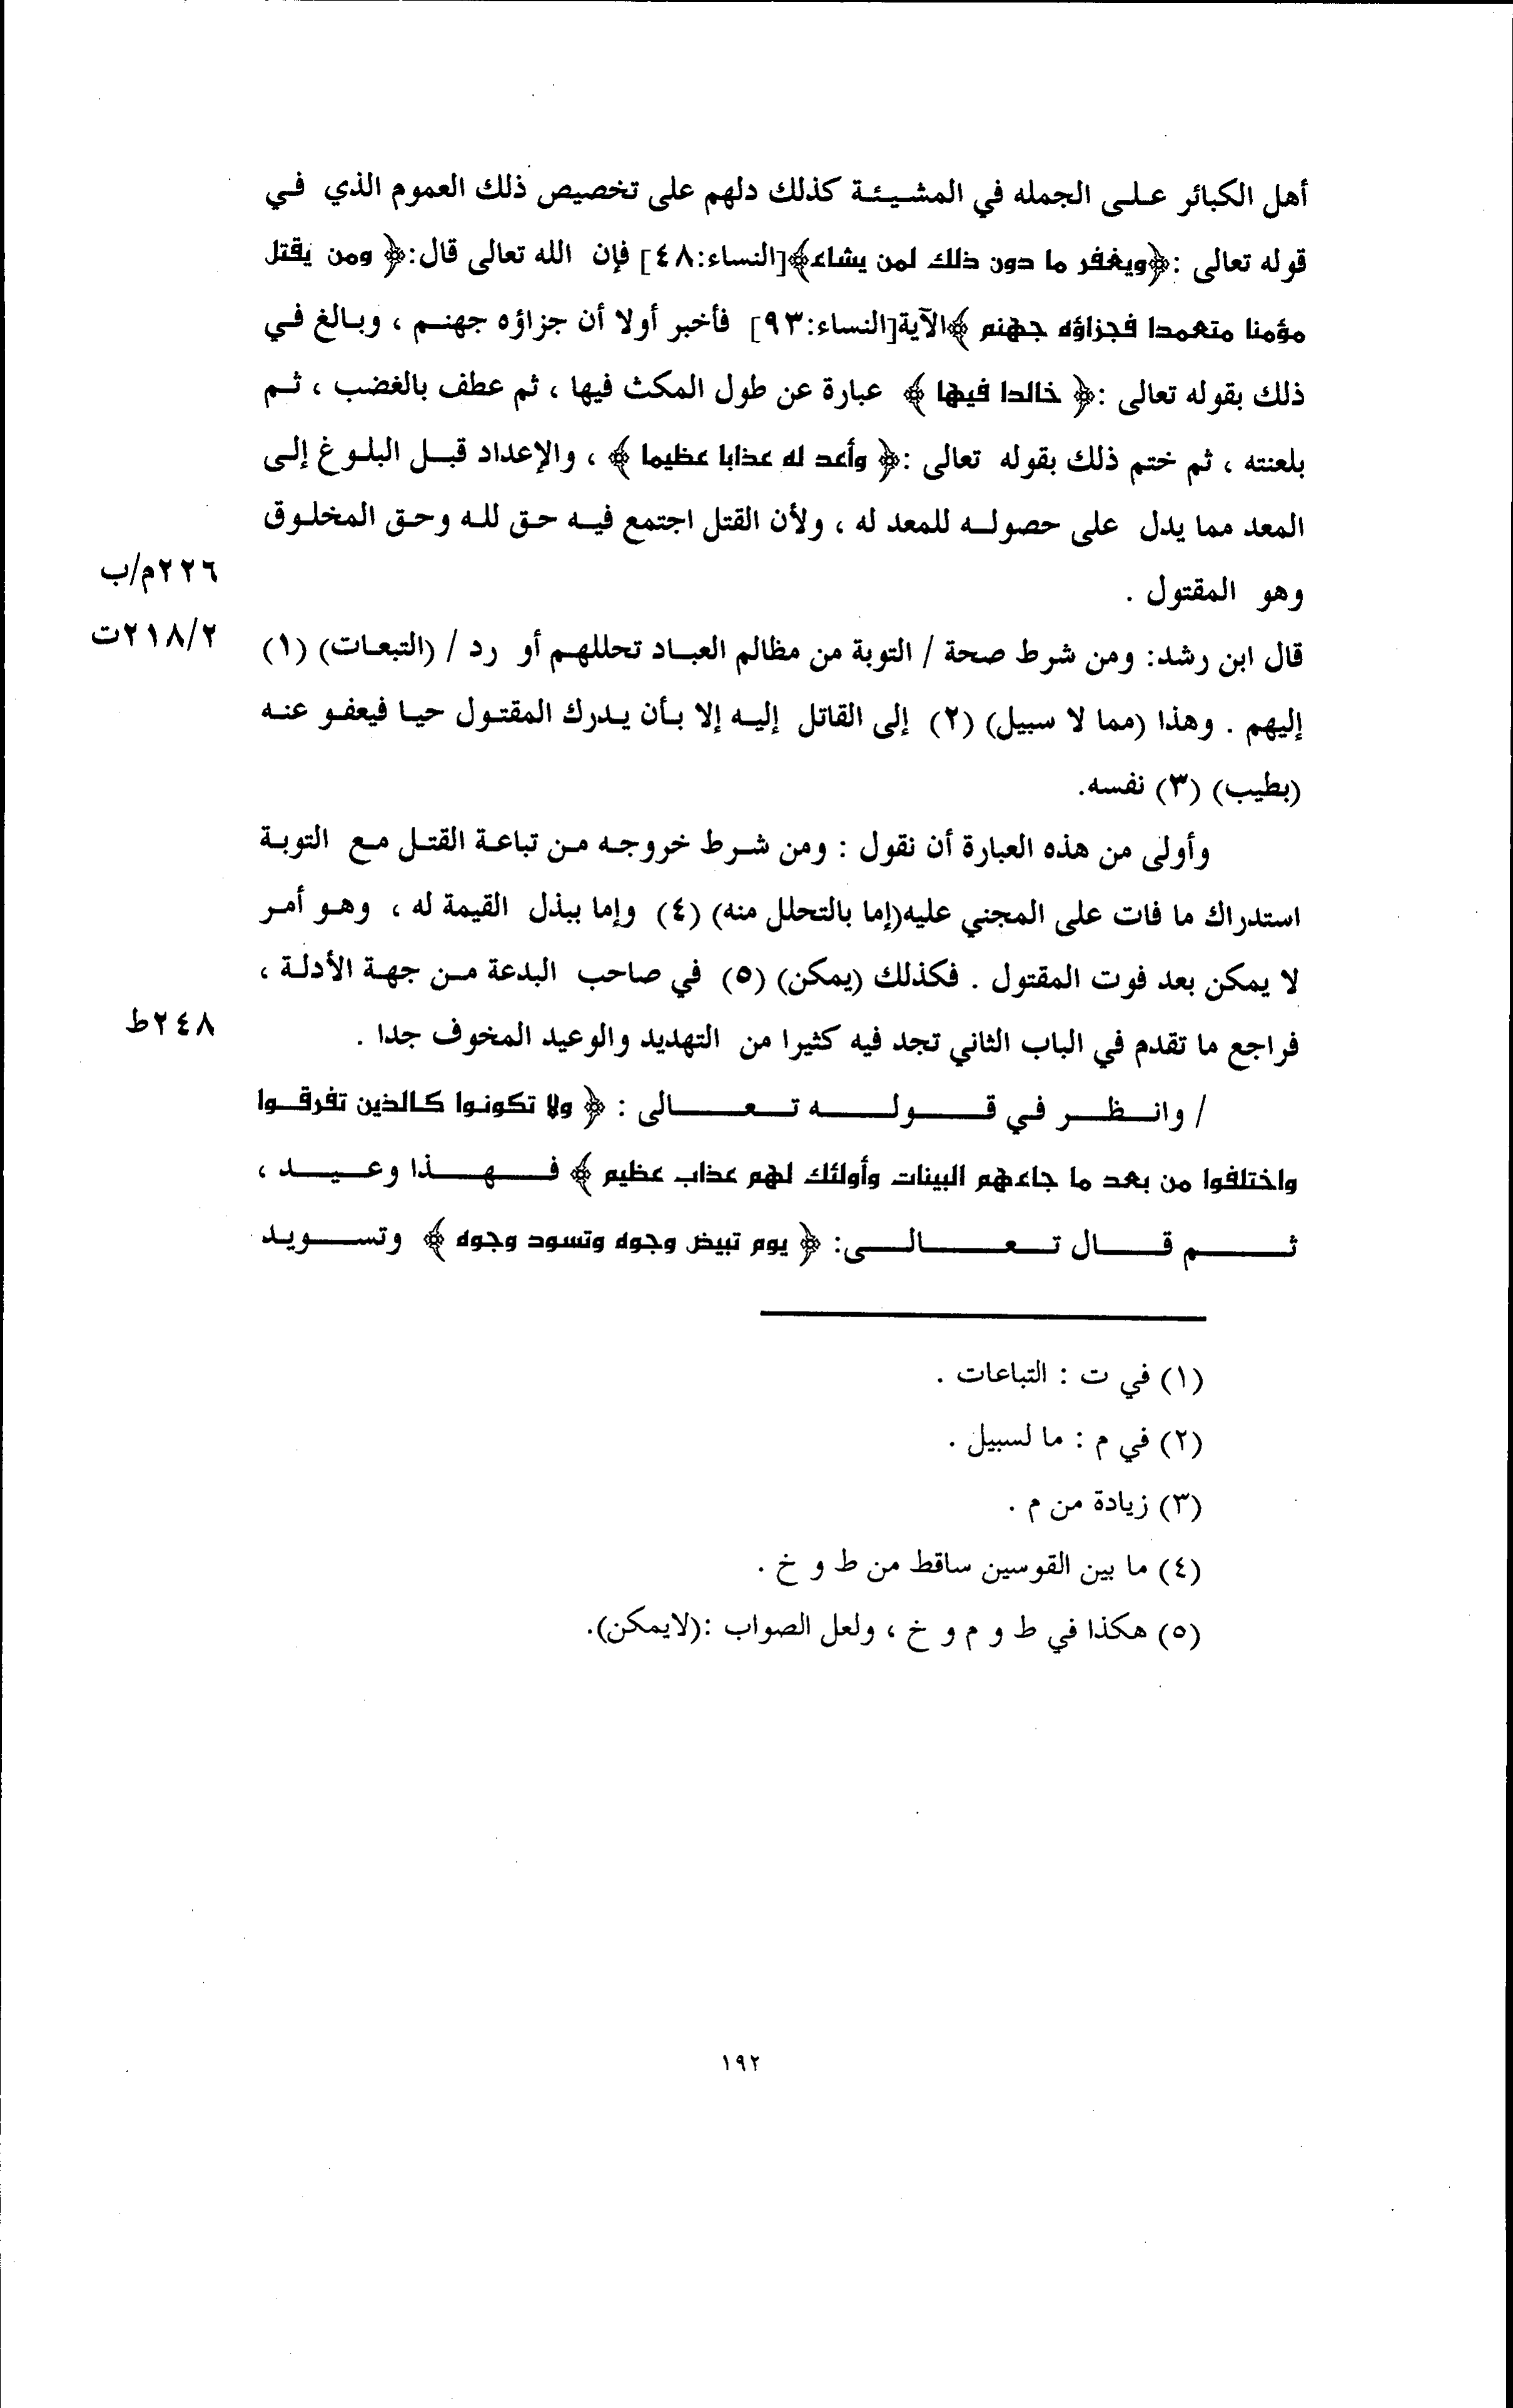 أهل الكبائر على الجمله في المشيئة كذلك دلهم على تخصيص ذلك العموم الذي في
قوله تعالى :﴿ويغفر ما دون ذلك لمن يشاء﴾[النساء:٤٨] فإن الله تعالى قال:﴿ ومن يقتل
مؤمنا متعمدا فجزاؤه جهنم ﴾الآية[النساء:٩٣] فأخبر أولا أن جزاؤه جهنم ، وبالغ في
ذلك بقوله تعالى :﴿ خالدا فيها ﴾ عبارة عن طول المكث فيها ، ثم عطف بالغضب ، ثم
بلعنته ، ثم ختم ذلك بقوله تعالى :﴿ وأعد له عذابا عظيما ﴾ ، والإعداد قبل البلوغ إلى
المعد مما يدل على حصوله للمعد له ، ولأن القتل اجتمع فيه حق لله وحق المخلوق
٢٢٦م/ب
وهو المقتول .
٢١٨/٢ت
قال ابن رشد: ومن شرط صحة / التوبة من مظالم العباد تحللهم أو رد / (التبعات) (١)
إليهم . وهذا (مما لا سبيل) (٢) إلى القاتل إليه إلا بأن يدرك المقتول حيا فيعفو عنه
(بطيب) (٣) نفسه.
وأولى من هذه العبارة أن نقول : ومن شرط خروجه من تباعة القتل مع التوبة
استدراك ما فات على المجني عليه(إما بالتحلل منه) (٤) وإما ببذل القيمة له ، وهو أمر
لا يمكن بعد فوت المقتول . فكذلك (يمكن) (٥) في صاحب البدعة من جهة الأدلة ،
فراجع ما تقدم في الباب الثاني تجد فيه كثيرا من التهديد والوعيد المخوف جدا .
٢٤٨ط
/ وانظر في قوله تعالى : ﴿ ولا تكونوا كالذين تفرقوا
واختلفوا من بعد ما جاءهم البينات وأولئك لهم عذاب عظيم ﴾ فهذا وعيد ،
ثم قال تعالى: ﴿ يوم تبيض وجوه وتسود وجوه ﴾ وتسويد
(١) في ت : التباعات .
(٢) في م : ما لسبيل .
(٣) زيادة من م .
(٤) ما بين القوسين ساقط من ط و خ .
(٥) هكذا في ط و م و خ ، ولعل الصواب :(لايمكن).
١٩٢